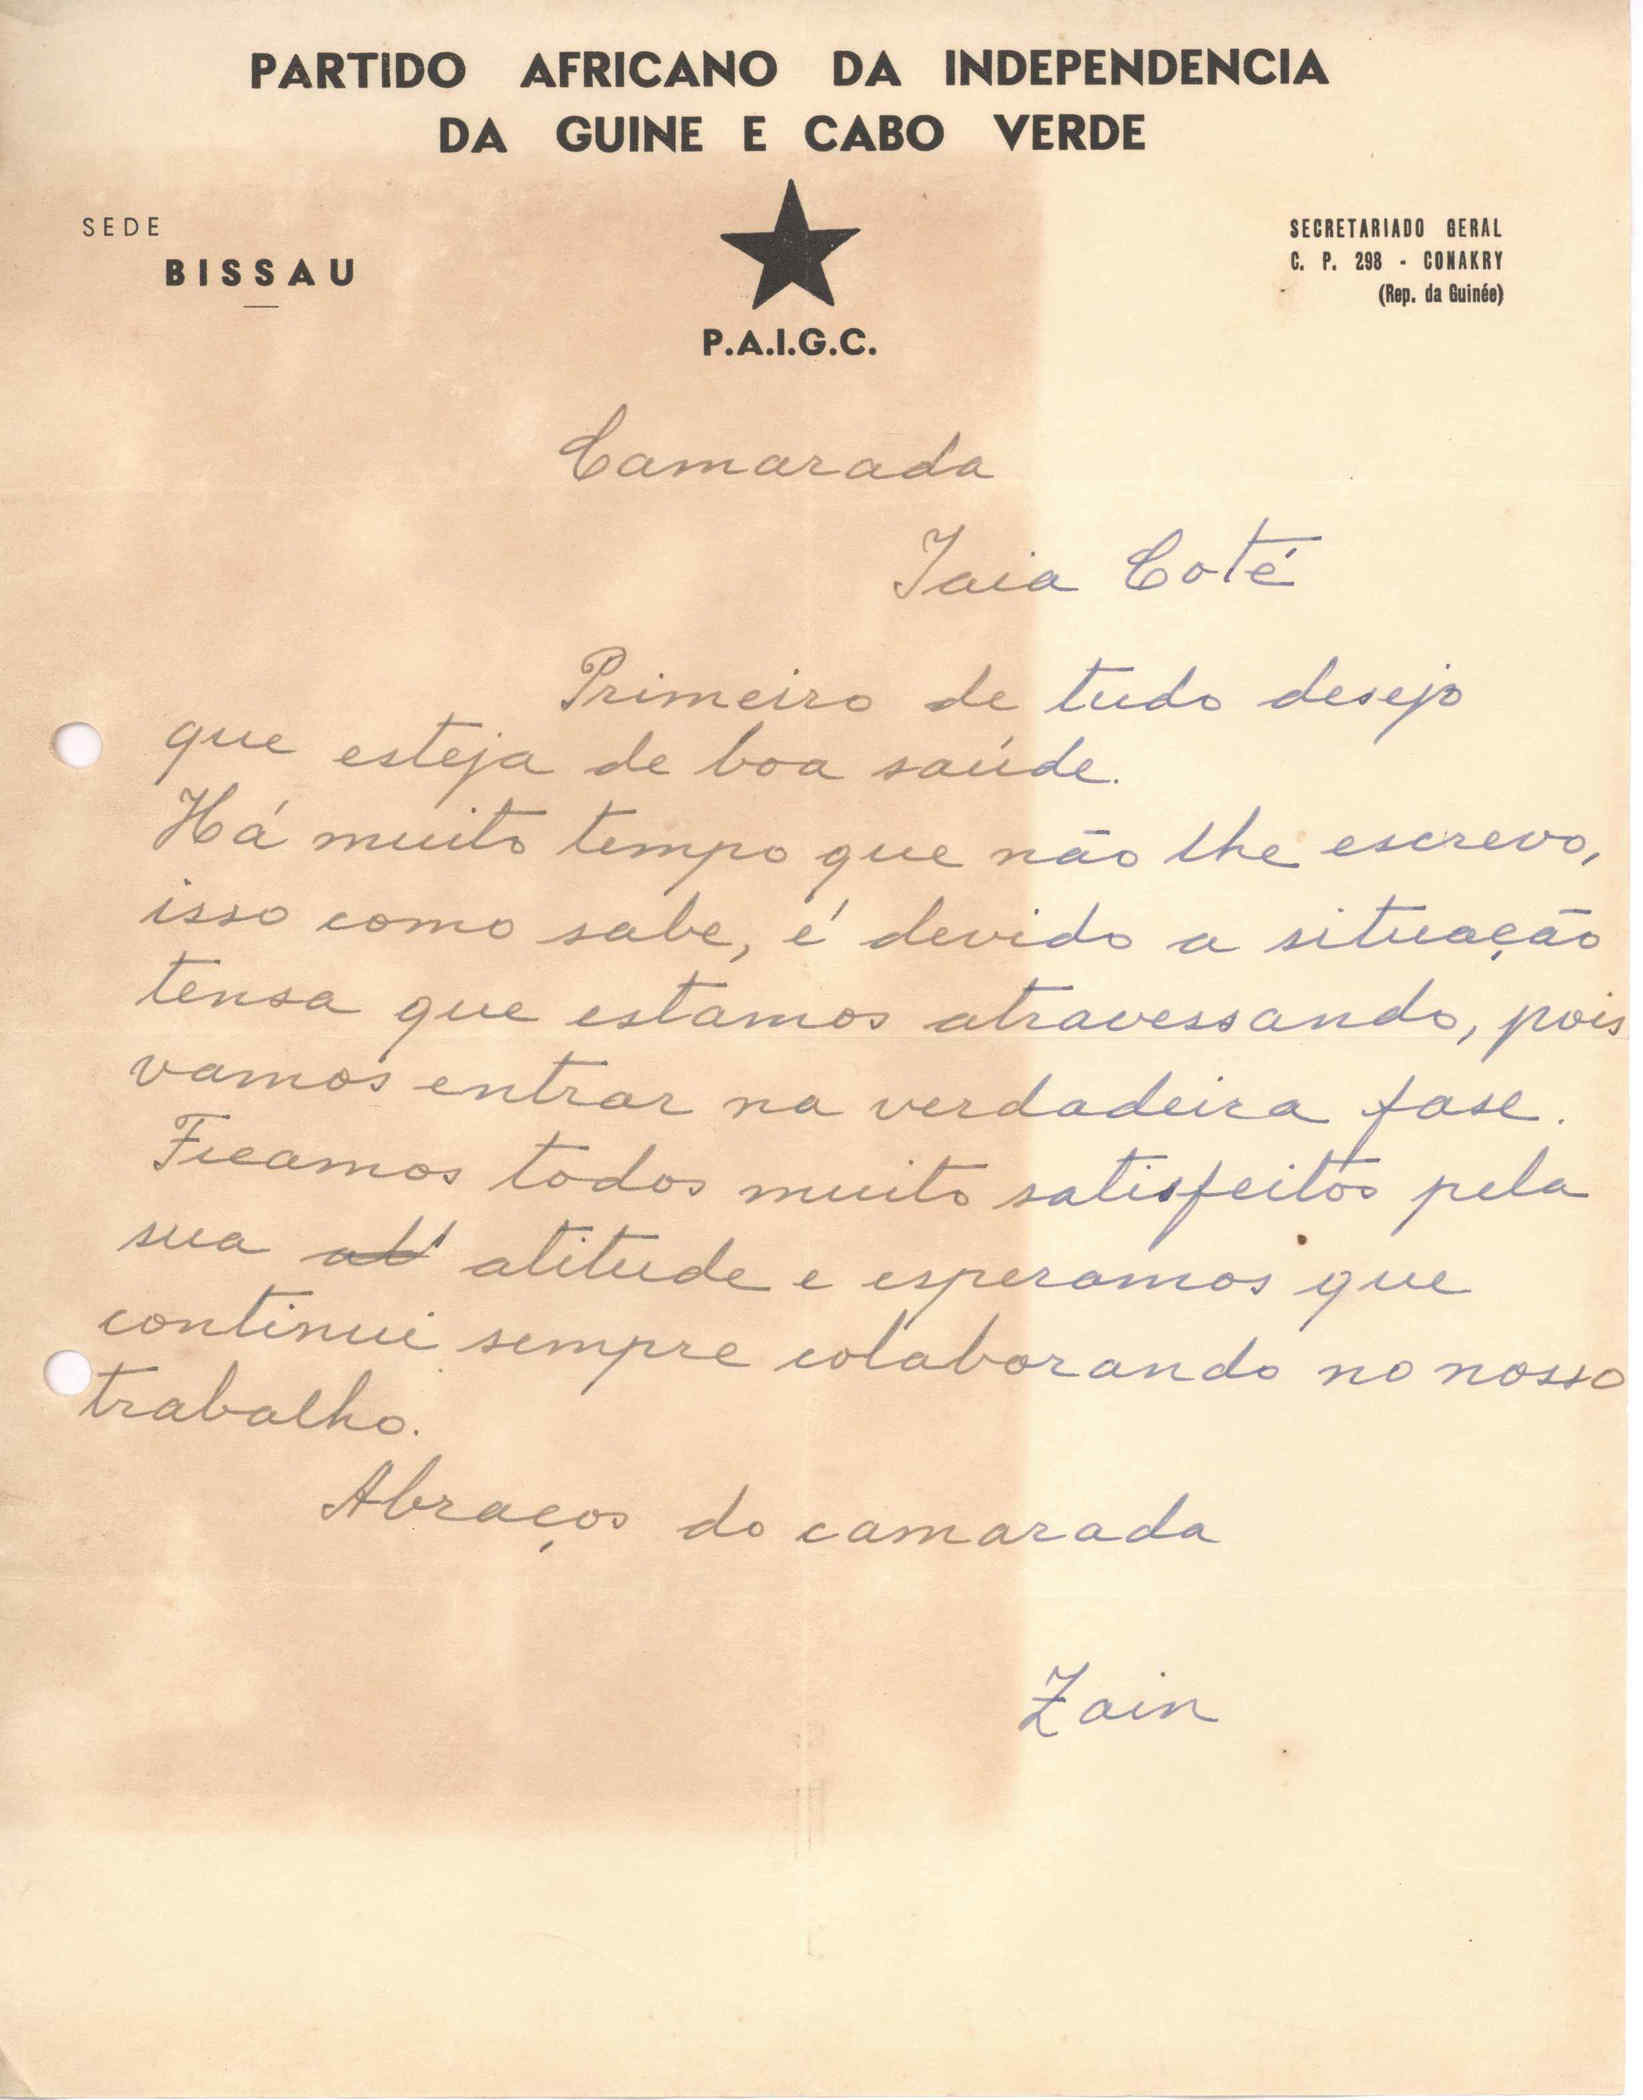 PARTIDO AFRICANO DA INDEPENDENCIA
DA GUINE E CABO VERDE
SEDE
BISSAU
P.A.I.G.C.
SECRETARIADO GERAL
C. P. 298 - CONAKRY
(Rep. da Guinée)
Camarada
Iaia Coté
Primeiro de tudo desejo
que esteja de boa saúde.
Há muito tempo que não lhe escrevo,
isso como sabe, é devido a situação
tensa que estamos atravessando, pois
vamos entrar na verdadeira fase.
Ficamos todos muito satisfeitos pela
sua atitude e esperamos que
continui sempre colaborando no nosso
trabalho.
Abraços do camarada
Zain